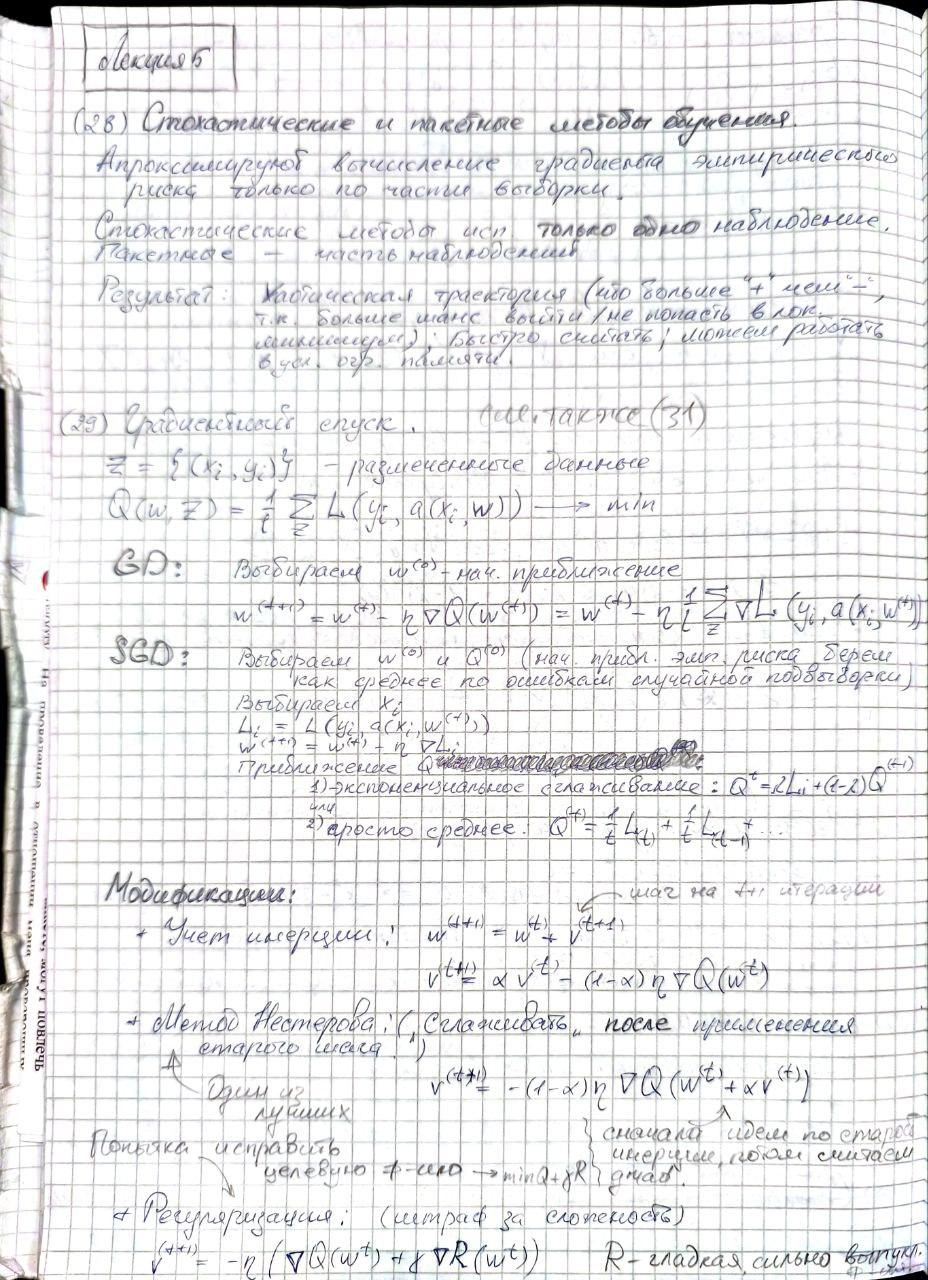 Лекция 5
(28) Стохастические и пакетные методы обучения.
Апроксимируют вычисление градиента эмпирического
риска только по части выборки.
Стохастические методы исп только одно наблюдение.
Пакетные — часть наблюдений
Результат: Хаотическая траектория (что больше "+" чем "-",
т.к. больше шанс выйти/не попасть в лок.
минимум); Быстро считать; можем работать
в усл. огр. памяти.
(29) Градиентный спуск. см. также (31)
Z = {(xi, yi)} - размеченные данные
Q(w, Z) = 1/l Σ_Z L(yi, a(xi, w)) → min
GD: Выбираем w^(0) - нач. приближение
w^(t+1) = w^(t) - η ∇Q(w^(t)) = w^(t) - η 1/l Σ_Z ∇L(yi, a(xi, w^(t)))
SGD: Выбираем w^(0) и Q^(0) (нач. прибл. эмп. риска берем
как среднее по ошибкам случайной подвыборки)
Выбираем xi
Li = L(yi, a(xi, w^(t)))
w^(t+1) = w^(t) - η ∇Li
Приближение Q
1) экспоненциальное сглаживание: Q^t = λLi + (1-λ)Q^(t-1)
или
2) просто среднее: Q^(t) = 1/t L_(t) + 1/t L_(t-1) + ...
Модификации:
шаг на t+1 итерации
+ Учет инерции: w^(t+1) = w^(t) + v^(t+1)
v^(t+1) = αv^(t) - (1-α) η ∇Q(w^t)
+ Метод Нестерова: („Сглаживать" после применения
старого шага!)
v^(t+1) = -(1-α) η ∇Q(w^(t) + αv^(t))
Один из
лучших
сначала идем по старой
инерции, потом считаем
град.
Попытка исправить
целевую ф-цию → min Q+γR
+ Регуляризация: (штраф за сложность)
v^(t+1) = -η (∇Q(w^t) + γ ∇R(w^t)) R - гладкая, сильно выпукл.
повлечь